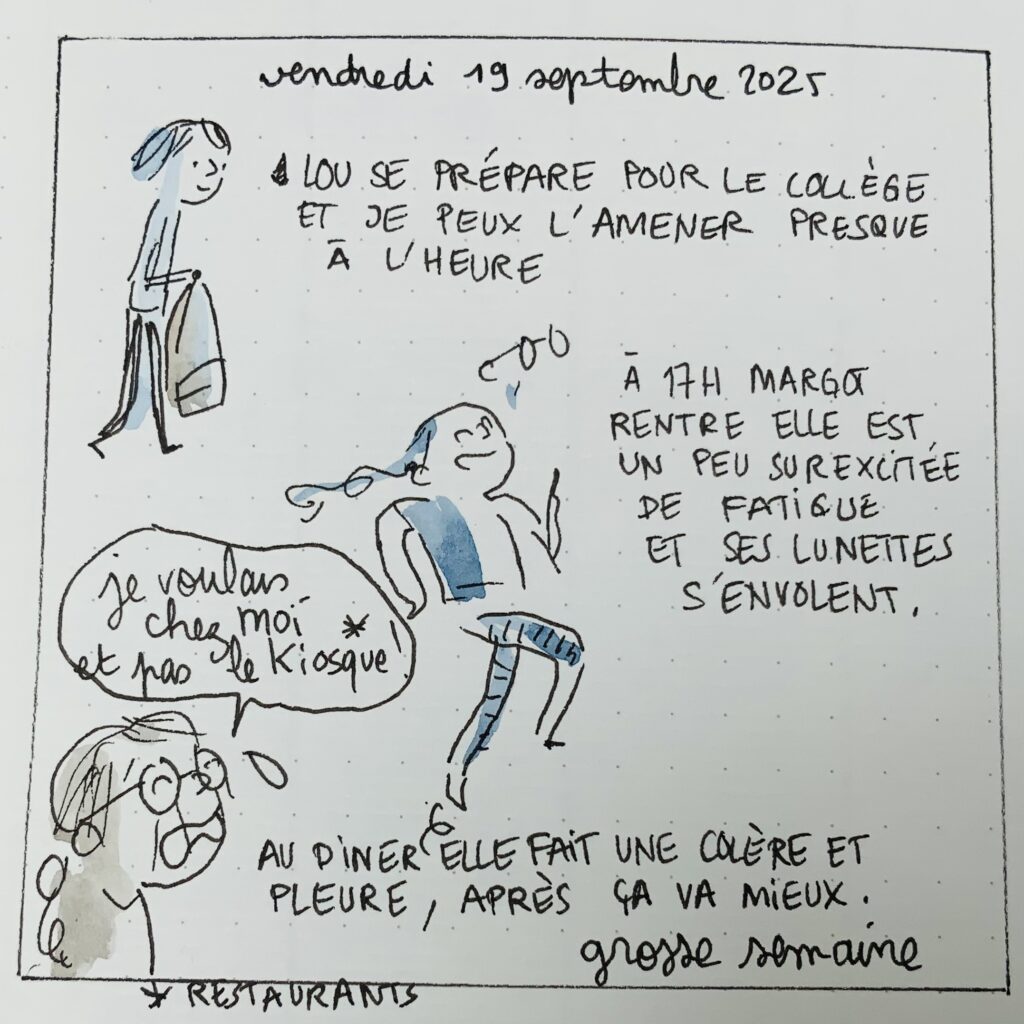 vendredi 19 septembre 2025
LOU SE PRÉPARE POUR LE COLLÈGE
ET JE PEUX L'AMENER PRESQUE
À L'HEURE
À 17H MARGOT
RENTRE ELLE EST
UN PEU SUREXCITÉE
DE FATIGUE
ET SES LUNETTES
S'ENVOLENT.
je voulais
chez moi *
et pas le Kiosque !
AU DINER ELLE FAIT UNE COLÈRE ET
PLEURE, APRÈS ÇA VA MIEUX.
grosse semaine
* RESTAURANTS